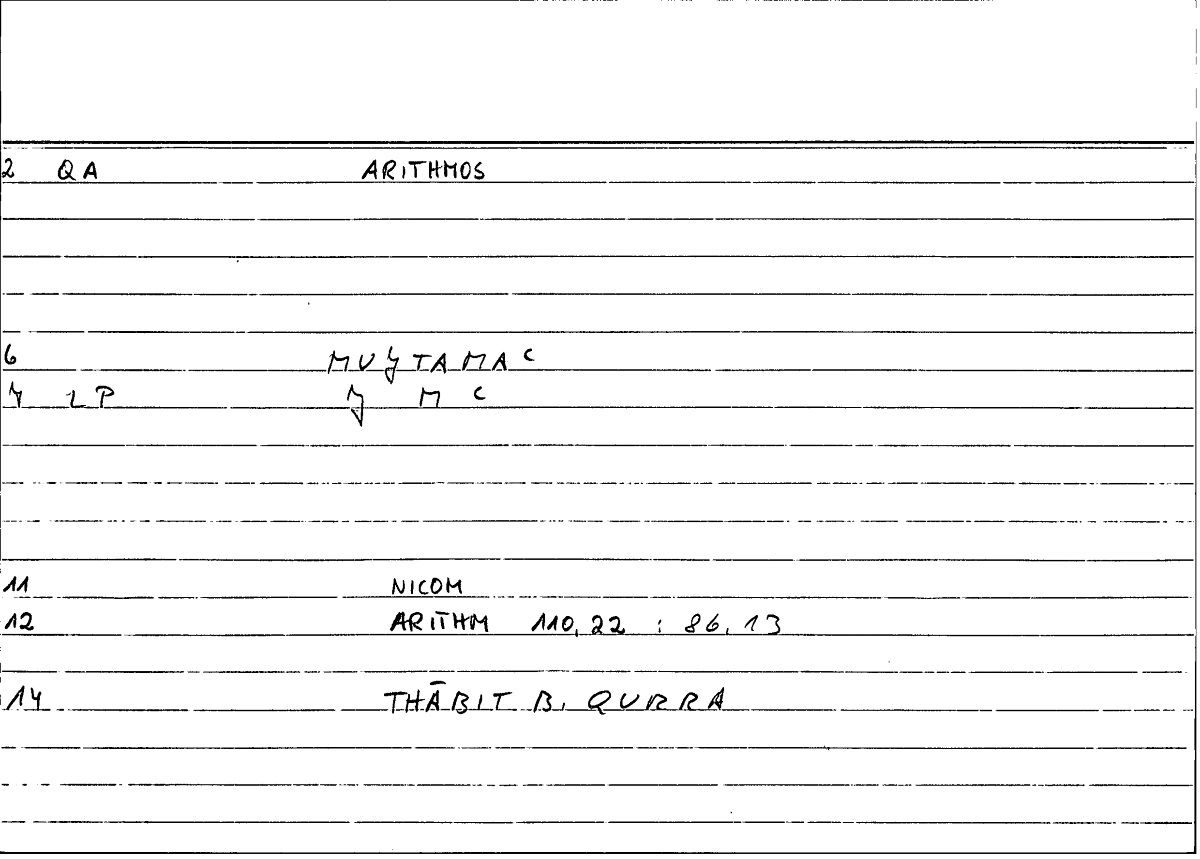 2 QA ARITHMOS
6 MUJTAMA ʿ
7 J M ʿ
11 NICOM
12 ARITHM 110,22 : 86,13
14 THĀBIT B. QURRA